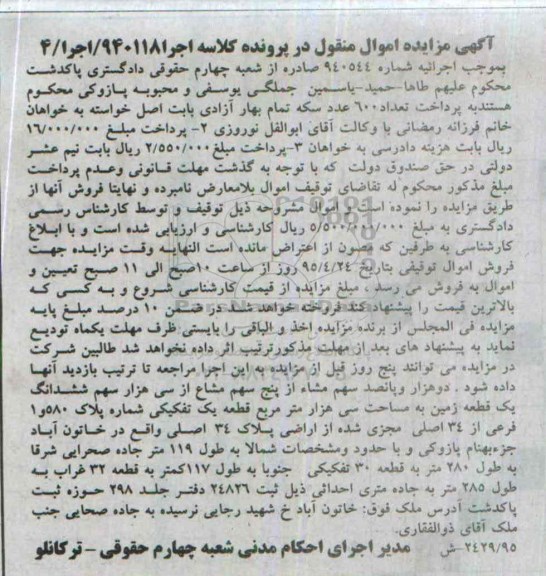 آگهی مزایده اموال منقول در پرونده کلاسه اجرا۹۴۰۱۱۸/اجرا/۴
بموجب اجرائیه شماره ۹۴۰۵۴۴ صادره از شعبه چهارم حقوقی دادگستری پاکدشت
محکوم علیهم طاها-حمید-یاسمین جملگی یوسفی و محبوبه پازوکی محکوم
هستندبه پرداخت تعداد۶۰۰ عدد سکه تمام بهار آزادی بابت اصل خواسته به خواهان
خانم فرزانه رمضانی با وکالت آقای ابوالفل نوروزی ۲- پرداخت مبلغ ۱۶/۰۰۰/۰۰۰
ریال بابت هزینه دادرسی به خواهان ۳-پرداخت مبلغ۲/۵۵۰/۰۰۰ ریال بابت نیم عشر
دولتی در حق صندوق دولت که با توجه به گذشت مهلت قانونی وعدم پرداخت
مبلغ مذکور محکوم له تقاضای توقیف اموال بلامعارض نامبرده و نهایتا فروش آنها از
طریق مزایده را نموده است که اموال مشروحه ذیل توقیف و توسط کارشناس رسمی
دادگستری به مبلغ ۵/۵۰۰/۰۰۰/۰۰۰ ریال کارشناسی و ارزیابی شده است و با ابلاغ
کارشناسی به طرفین که مصون از اعتراض مانده است النهایه وقت مزایده جهت
فروش اموال توقیفی بتاریخ ۹۵/۴/۲۴ روز از ساعت ۱۰صبح الی ۱۱ صبح تعیین و
اموال به فروش می رسد ، مبلغ مزایده از قیمت کارشناسی شروع و به کسی که
بالاترین قیمت را پیشنهاد کند فروخته خواهد شد در ضمن ۱۰ درصد مبلغ پایه
مزایده فی المجلس از برنده مزایده اخذ و الباقی را بایستی ظرف مهلت یکماه تودیع
نماید به پیشنهاد های بعد از مهلت مذکورترتیب اثر داده نخواهد شد طالبین شرکت
در مزایده می توانند پنج روز قبل از مزایده به این اجرا مراجعه تا ترتیب بازدید آنها
داده شود . دوهزار وپانصد سهم مشاء از پنج سهم مشاع از سی هزار سهم ششدانگ
یک قطعه زمین به مساحت سی هزار متر مربع قطعه یک تفکیکی شماره پلاک ۵۸۰و۱
فرعی از ۳۴ اصلی مجزی شده از اراضی پلاک ۳۴ اصلی واقع در خاتون آباد
جزءبهنام پازوکی و با حدود ومشخصات شمالا به طول ۱۱۹ متر جاده صحرایی شرقا
به طول ۲۸۰ متر به قطعه ۳۰ تفکیکی جنوبا به طول ۱۱۷کمتر به قطعه ۳۲ غراب به
طول ۲۸۵ متر به جاده متری احداثی ذیل ثبت ۲۴۸۲۶ دفتر جلد ۲۹۸ حوزه ثبت
پاکدشت آدرس ملک فوق: خاتون آباد خ شهید رجایی نرسیده به جاده صحایی جنب
ملک آقای ذوالفقاری.
۲۴۲۹/۹۵-ش مدیر اجرای احکام مدنی شعبه چهارم حقوقی - ترکانلو